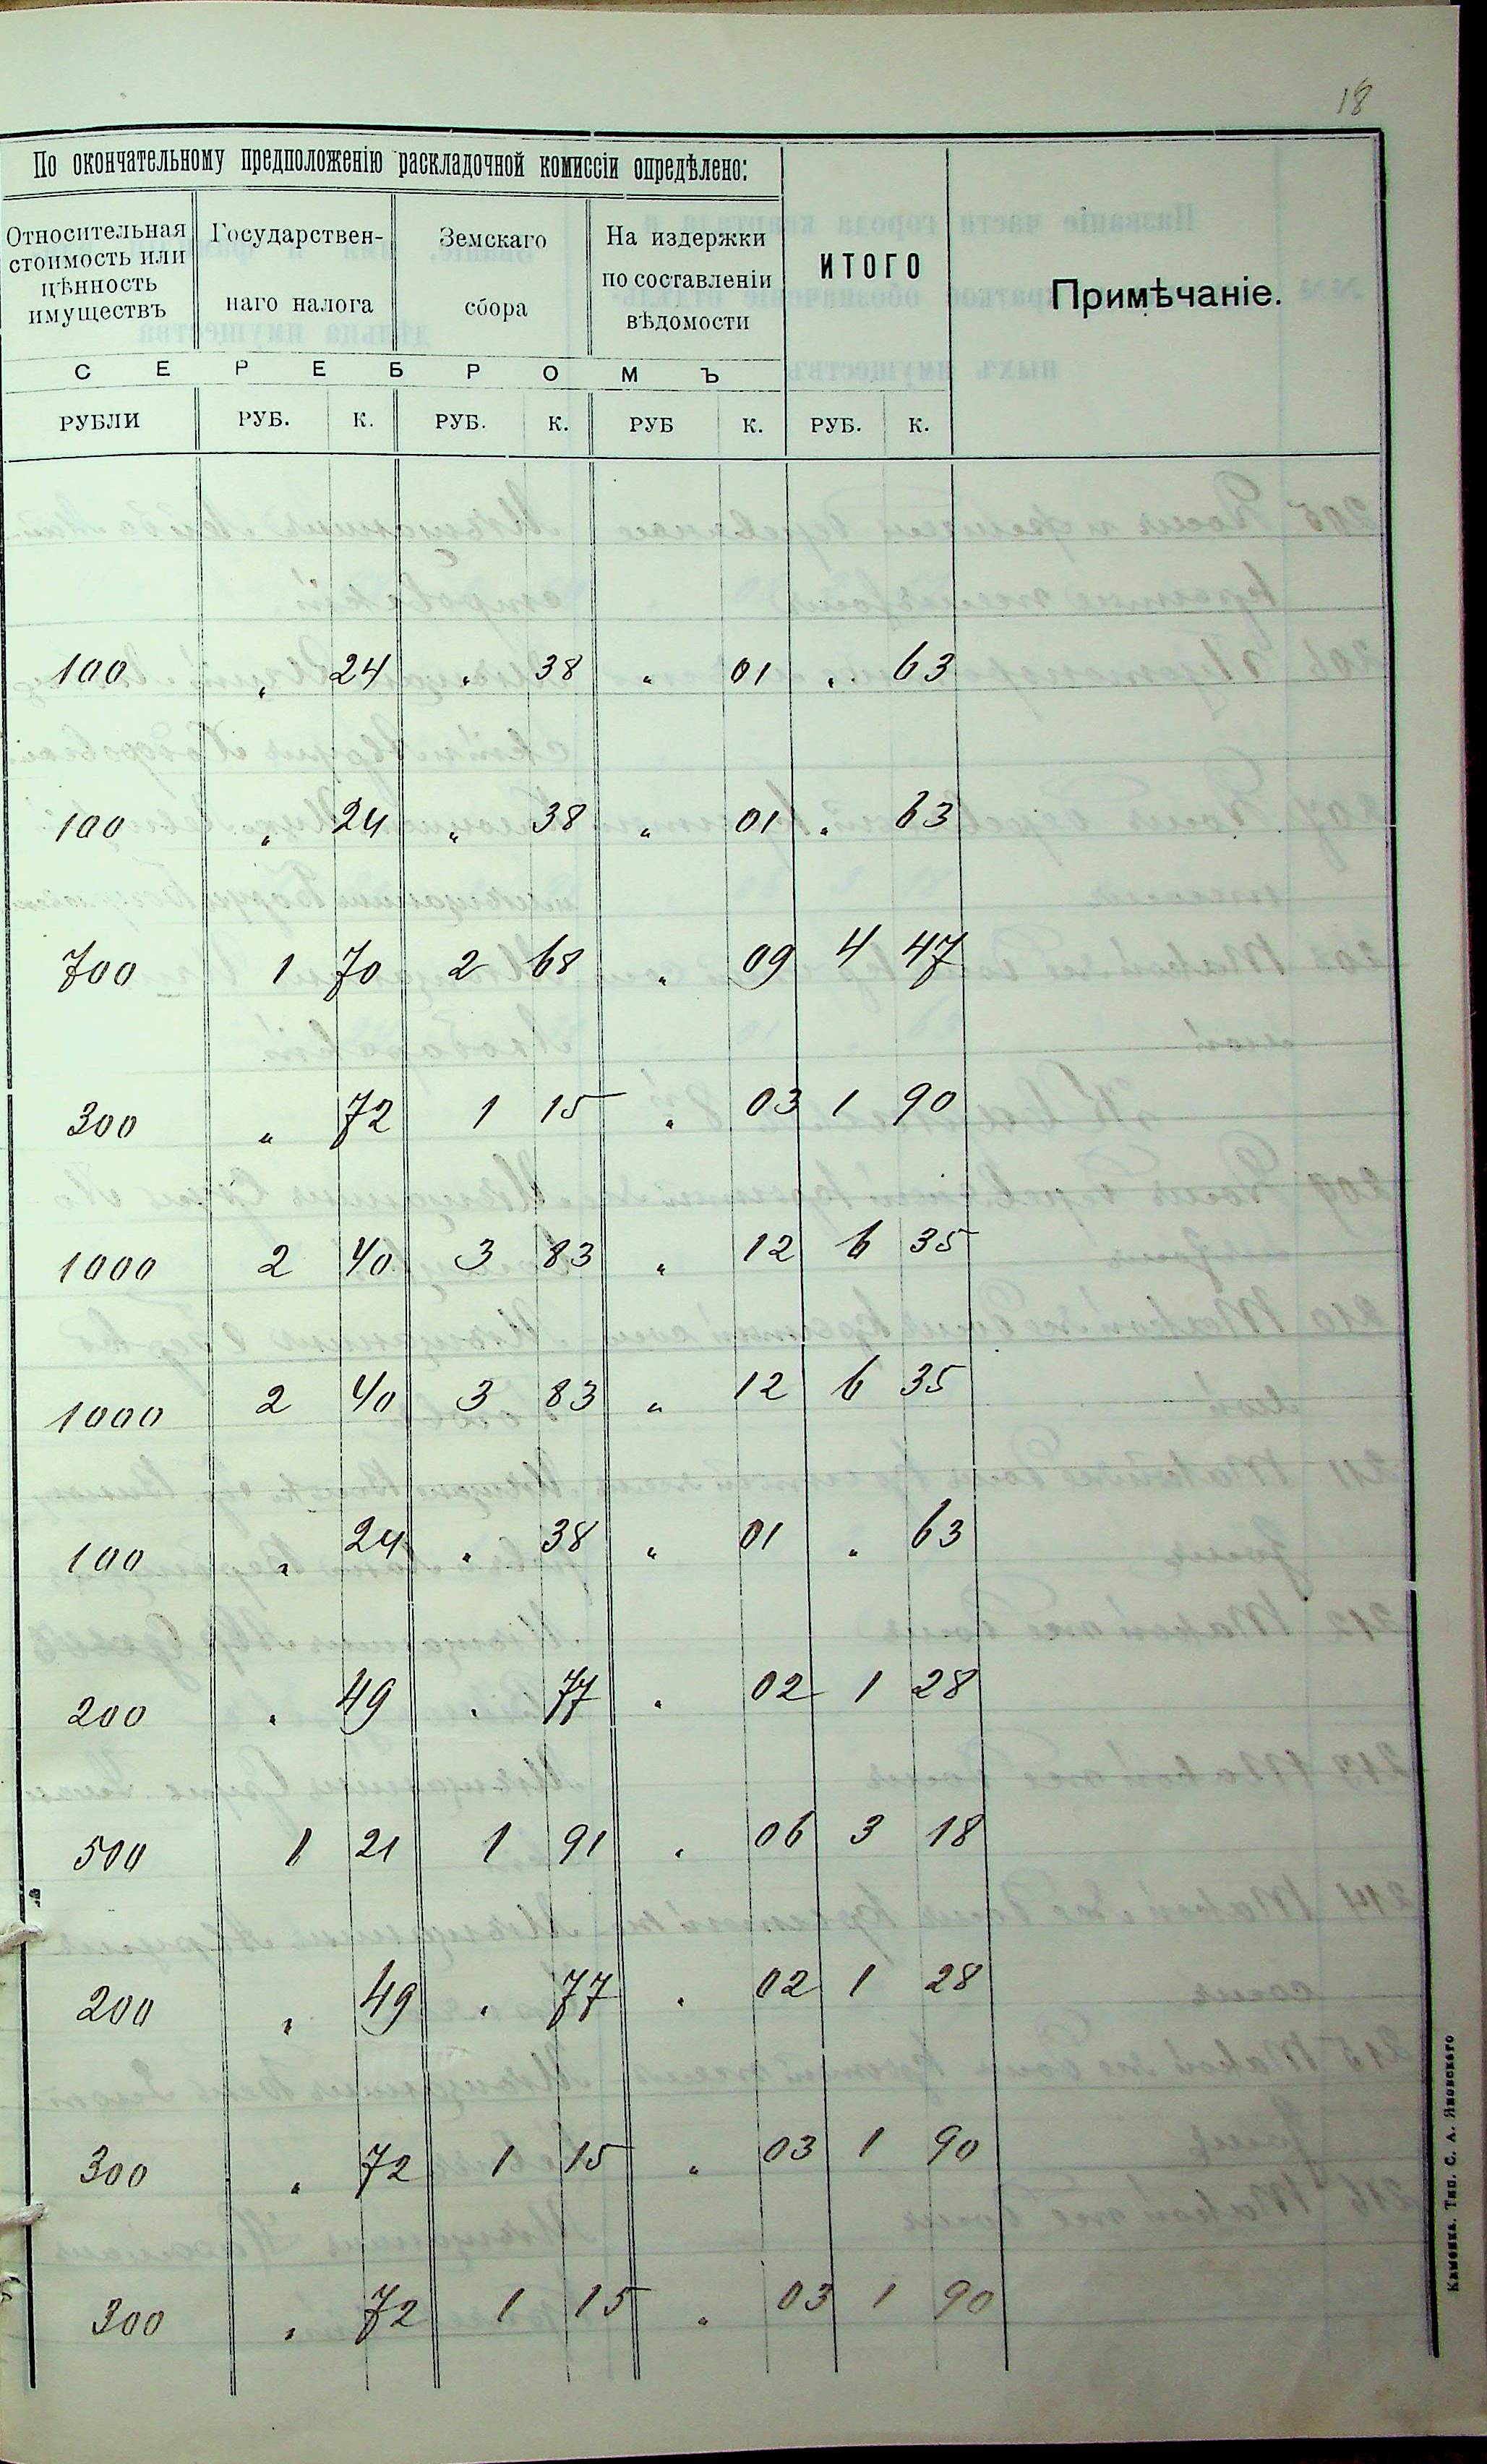 18
По окончательному предположенію раскладочной комиссіи опредѣлено:
Относительная стоимость или цѣнность имуществъ
Государствен-наго налога
Земскаго сбора
На издержки по составленіи вѣдомости
ИТОГО
Примѣчаніе.
С Е Р Е Б Р О М Ъ
РУБЛИ РУБ. К. РУБ. К. РУБ К. РУБ. К.
100 „ 24 „ 38 „ 01 „ 63
100 „ 24 „ 38 „ 01 „ 63
700 1 70 2 68 „ 09 4 47
300 „ 72 1 15 „ 03 1 90
1000 2 40 3 83 „ 12 6 35
1000 2 40 3 83 „ 12 6 35
100 „ 24 „ 38 „ 01 „ 63
200 „ 49 „ 77 „ 02 1 28
500 1 21 1 91 „ 06 3 18
200 „ 49 „ 77 „ 02 1 28
300 „ 72 1 15 „ 03 1 90
300 „ 72 1 15 „ 03 1 90
Каменка. Тип. С. А. Яновскаго